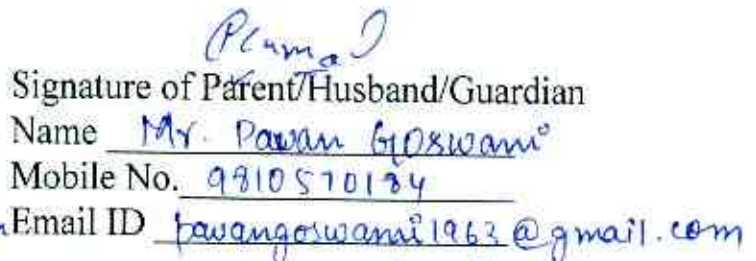 Signature of Parent/Husband/Guardian
Name Mr. Pawan Goswami
Mobile No. 9810570184
Email ID pawangoswami1962@gmail.com